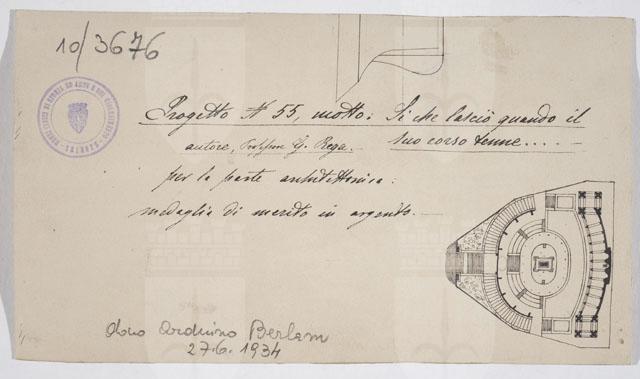 10/3676
Progetto N 55, motto: Sì che lasciò quando il
suo corso tenne.....
autore, Professore G. Rega.
per la parte architettonica:
medaglia di merito in argento.
dono Arduino Berlam
27.6.1934